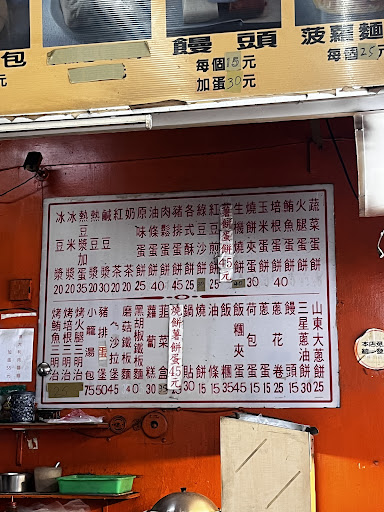 包
元
饅頭
每個15元
加蛋30元
菠蘿麵
每個25元
蔬菜蛋餅
火腿蛋餅
鮪魚蛋餅
培根蛋餅 40
玉米蛋餅
燒餅蛋 30
薯餅蛋餅45元
紅豆煎餅 25
綠豆沙餅
各式酥餅 25
豬排蛋餅
肉鬆蛋餅 40
油條蛋餅 40
原味蛋餅 30
奶茶 20
紅茶 20
鹹豆漿 30
熱豆漿 20
熱豆漿加蛋 35
冰米漿 20
冰豆漿 20
山東大蔥餅 25
三星蔥油餅 30
饅頭 15
蔥花卷
荷包蛋 15
飯糰夾蛋 45
飯糰 35
油條 25
燒餅 20
鍋貼
燒餅薯餅蛋45元
韭菜盒
蘿蔔糕 40
黑胡椒鐵板麵
蘑菇鐵板麵
豬排蛋堡 50
小籠湯包 75
烤火腿三明治
烤培根三明治
烤鮪魚三明治